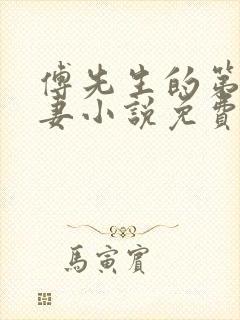 傅先生的第
妻小說免費
馬寅賓